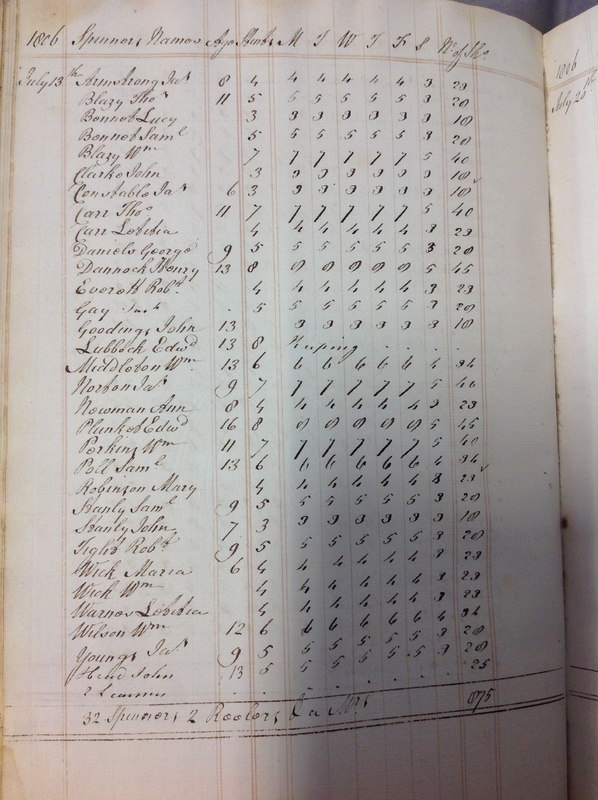 1806 Spinners Names Age Stints M T W T F S No of Sks
July 13th Armstrong Jas 8 4 4 4 4 4 4 3 23
Blazy Thos 11 5 5 5 5 5 5 3 28
Bennet Lucy 3 3 3 3 3 3 3 18
Bennet Saml 5 5 5 5 5 5 3 28
Blazy Wm 7 7 7 7 7 7 5 40
Clarke John 3 3 3 3 3 3 3 18
Constable Jas 6 3 3 3 3 3 3 3 18
Carr Thos 11 7 7 7 7 7 7 5 40
Carr Letitia 4 4 4 4 4 4 3 23
Daniels George 9 5 5 5 5 5 5 3 28
Dannock Henry 13 8 8 8 8 8 8 5 45
Everett Robt 4 4 4 4 4 4 3 23
Gay 5 5 5 5 5 5 3 28
Goodings John 13 3 3 3 3 3 3 18
Lubbock Edwd 13 8
Middleton Wm 13 6 6 6 6 6 6 4 34
Norton Jas 9 7 7 7 7 7 7 5 40
Newman Ann 8 4 4 4 4 4 4 3 23
Plunket Edwd 16 8 8 8 8 8 8 5 45
Perkins Wm 11 7 7 7 7 7 7 5 40
Poll Saml 13 6 6 6 6 6 6 4 34
Robinson Mary 4 4 4 4 4 4 3 23
Stanly Saml 9 5 5 5 5 5 5 3 28
Stanly John 7 3 3 3 3 3 3 3 18
Tight Robt 9 5 5 5 5 5 5 3 28
Wick Maria 6 4 4 4 4 4 4 3 23
Wick Wm 4 4 4 4 4 4 3 23
Warnes Letitia 4 4 4 4 4 4 3 23
Wilson Wm 12 6 6 6 6 6 6 4 34
Youngs Jas 9 5 5 5 5 5 5 3 28
Hend John 13 5 5 5 5 5 5 3 28
2 Learners 25
32 Spinners 2 Reelers & a Mrs 875
1806
July 20th